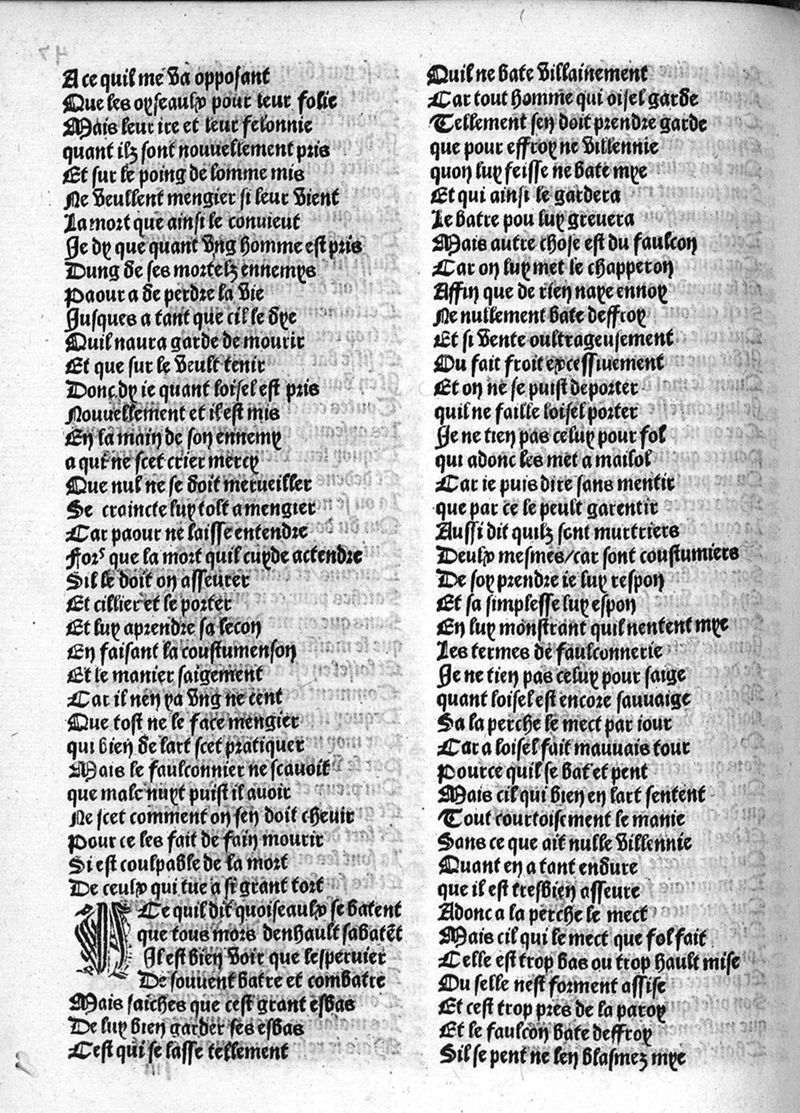 A ce quil me va opposant
Que les oyseaulx pour leur folie
Mais leur ire et leur felonnie
quant ilz sont nouvellement pris
Et sur le poing de lomme mis
Ne veullent mengier si leur vient
La mort que ainsi le convient
Je dy que quant vng homme est pris
Dung de ses mortelz ennemys
Paour a de perdre la vie
Jusques a tant que cil le dye
Quil naura garde de mourir
Et que sur le veult tenir
Donc dy ie quant loisel est pris
Nouvellement et il est mis
En la main de son ennemy
a qui ne scet crier mercy
Que nul ne se doit merueiller
Se craincte luy tolt a mengier
Car paour ne laisse entendre
Fors que la mort quil cuyde actendre
Sil le doit on asseurer
Et cillier et le porter
Et luy aprendre sa lecon
En faisant la coustumenson
Et le manier saigement
Car il nen ya vng ne cent
Que tost ne le face mengier
qui bien de lart scet pratiquer
Mais le faulconnier ne scavoit
que male nuyt puist il avoir
Ne scet comment on sen doit chevir
Pour ce les fait de fain mourir
Si est coulpable de la mort
De ceulx qui tue a si grant tort
A Ce quil dit quoiseaulx se batent
que tous mors denhault sabatēt
Il est bien voir que lespervier
De souvent batre et combatre
Mais saiches que cest grant esbas
De luy bien garder ses esbas
Cest qui se lasse tellement
Quil ne bate villainement
Car tout homme qui oisel garde
Tellement sen doit prendre garde
que pour effroy ne villennie
quon luy feisse ne bate mye
Et qui ainsi le gardera
Le batre pou luy greuera
Mais autre chose est du faulcon
Car on luy met le chapperon
Affin que de rien naye ennoy
Ne nullement bate deffroy
Et si vente oultrageusement
Ou fait froit excessivement
Et on ne se puist deporter
quil ne faille loisel porter
Je ne tien pas celuy pour fol
qui adonc les met a mailol
Car ie puis dire sans mentir
que par ce le peult garentir
Aussi dit quilz sont murtriers
Deulx mesmes/car sont coustumiers
De soy prendre ie luy respon
Et sa simplesse luy espon
En luy monstrant quil nentent mye
Les termes de faulconnerie
Je ne tien pas celuy pour saige
quant loisel est encore sauvaige
Sa la perche le mect par iour
Car a loisel fait mauvais tour
Pource quil se bat et pent
Mais cil qui bien en lart sentent
Tout courtoisement le manie
Sans ce que ait nulle villennie
Quant en a tant endure
que il est tresbien asseure
Adonc a la perche le mect
Mais cil qui le mect que fol fait
Celle est trop bas ou trop hault mise
Ou selle nest forment assise
Et cest trop pres de la paroy
Et le faulcon bate deffroy
Sil se pent ne len blasmez mye